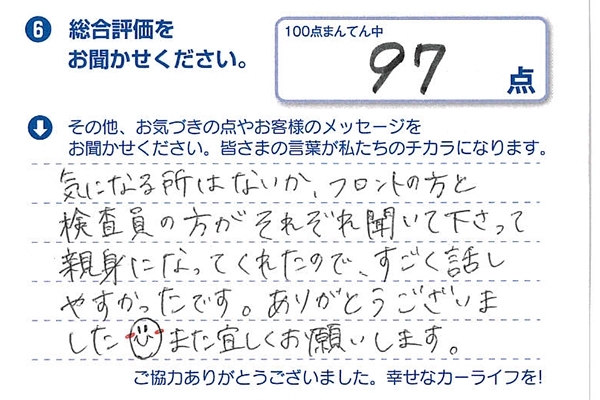 6 総合評価を
お聞かせください。
100点まんてん中
97
点
その他、お気づきの点やお客様のメッセージを
お聞かせください。皆さまの言葉が私たちのチカラになります。
気になる所はないか、フロントの方と
検査員の方がそれぞれ聞いて下さって
親身になってくれたので、すごく話し
やすかったです。ありがとうございま
した また宜しくお願いします。
ご協力ありがとうございました。幸せなカーライフを!